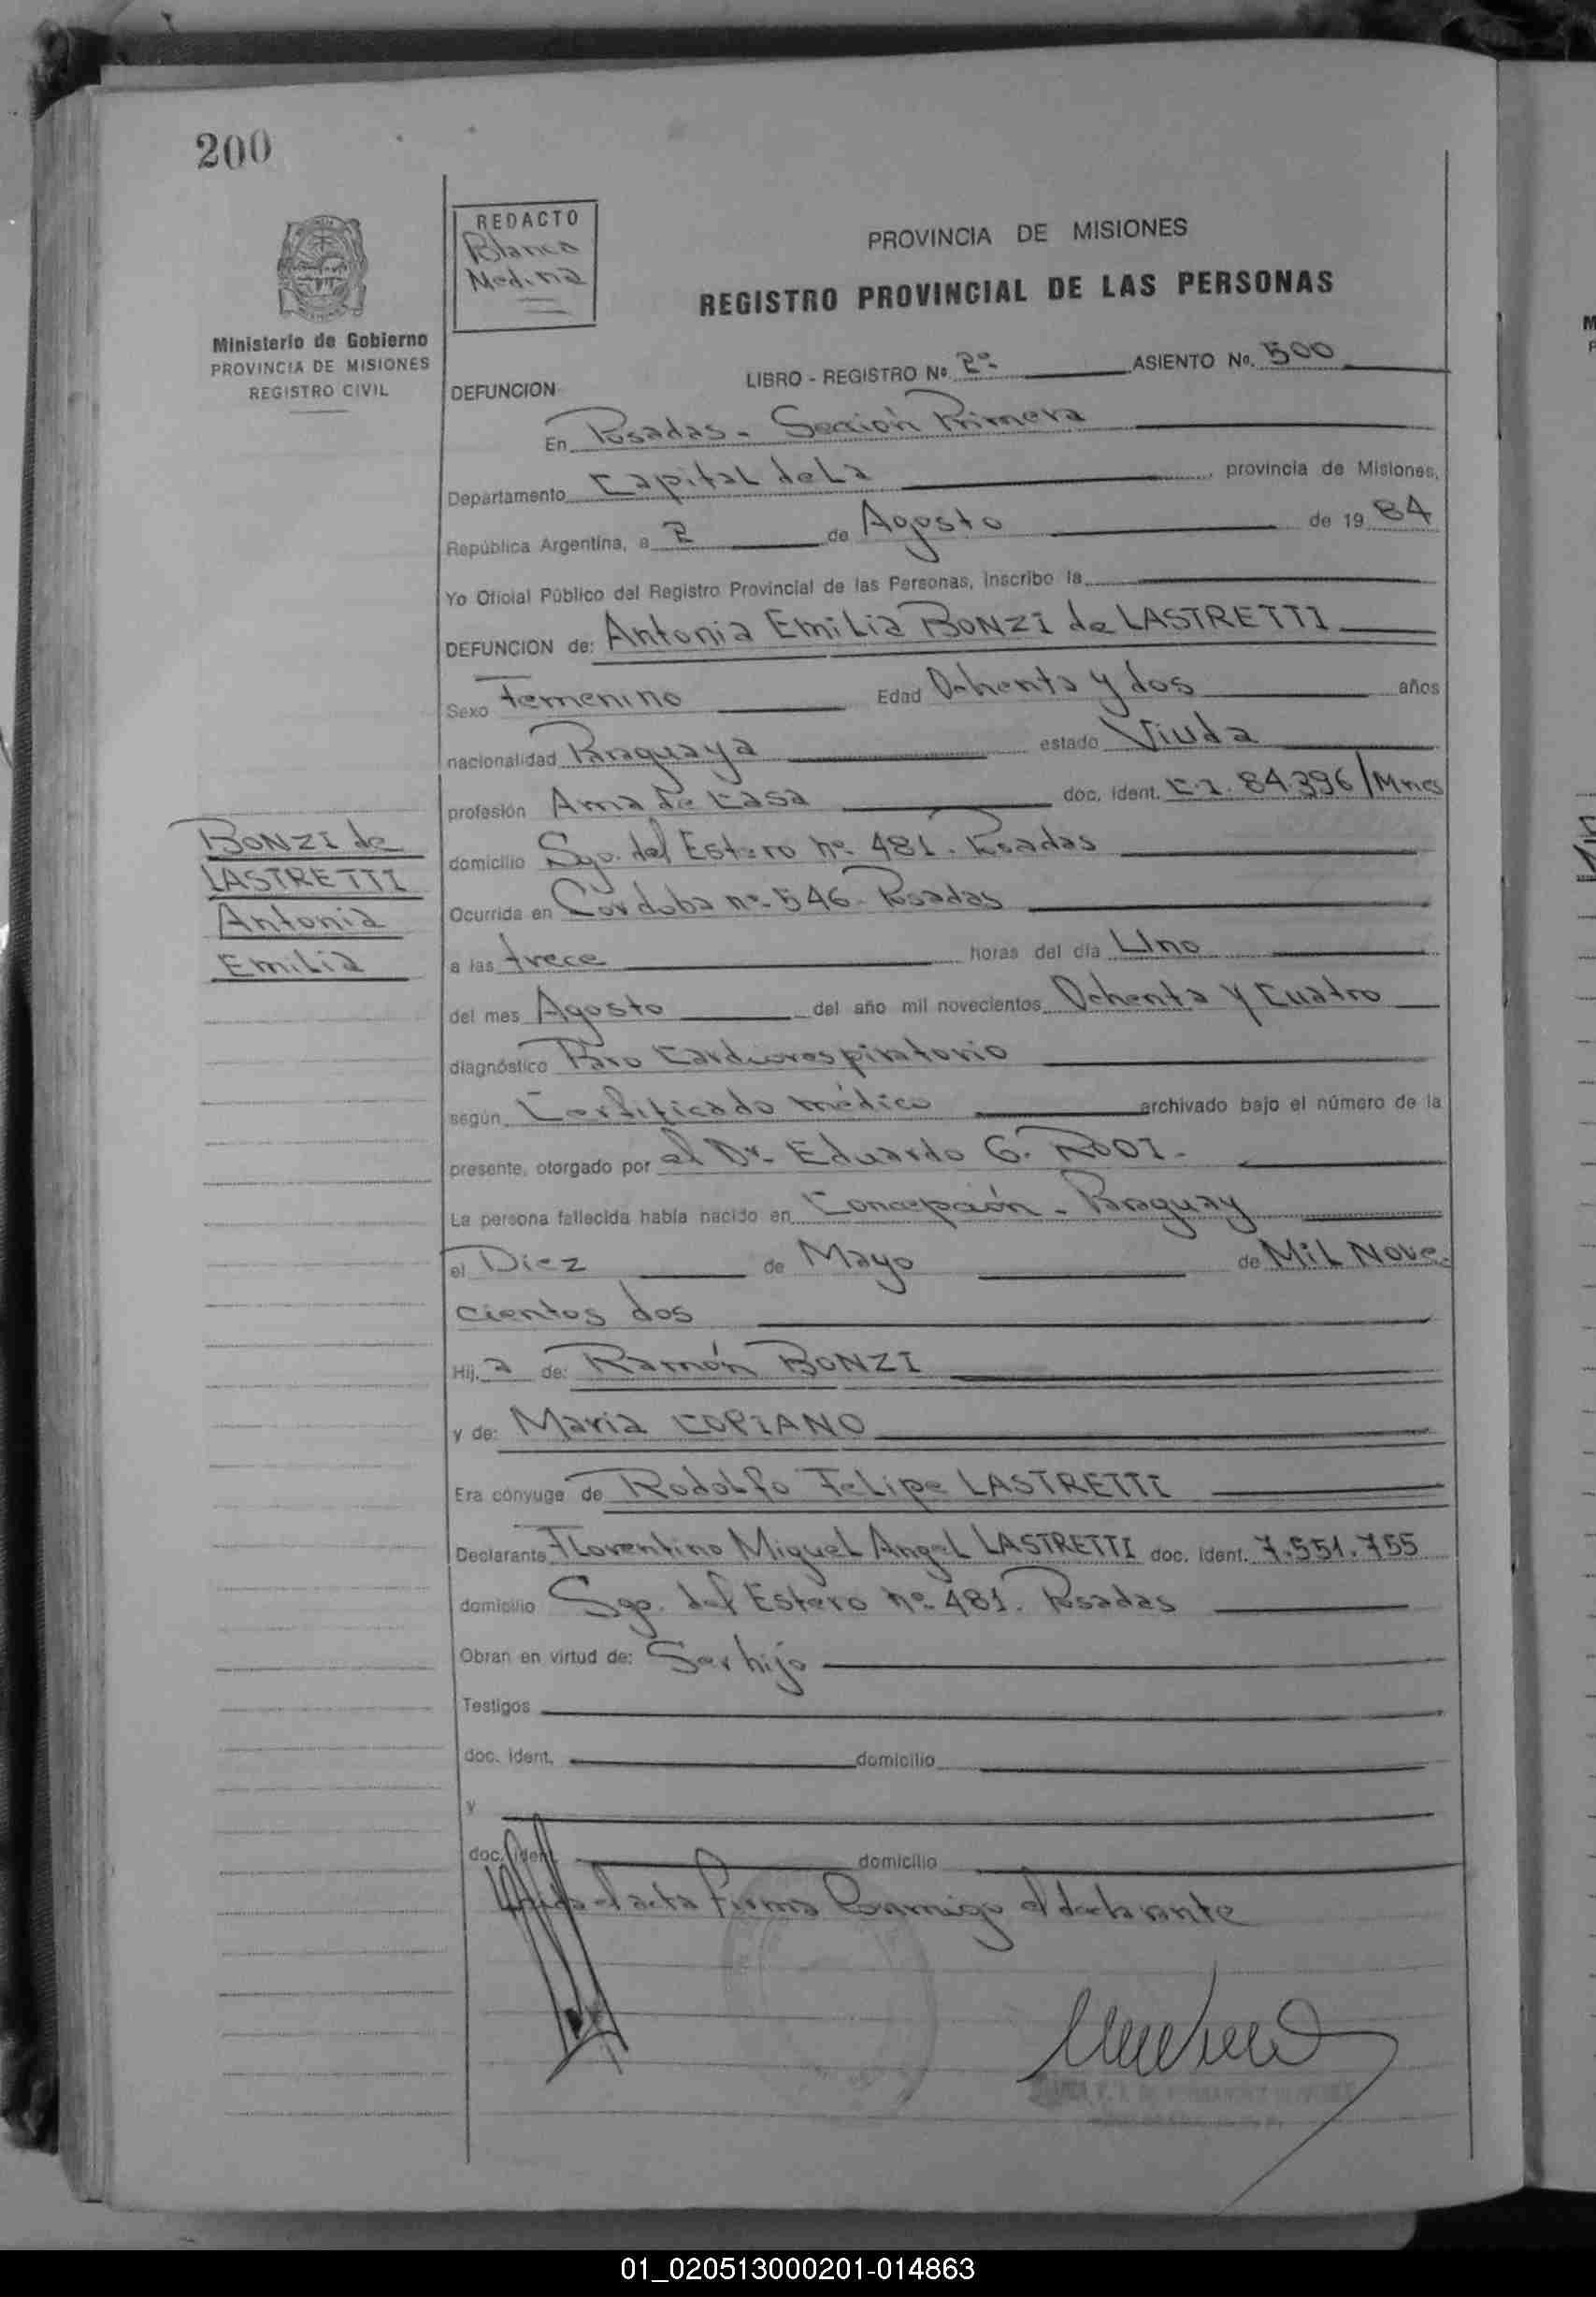 200
REDACTO
Blanca
Medina
PROVINCIA DE MISIONES
REGISTRO PROVINCIAL DE LAS PERSONAS
Ministerio de Gobierno
PROVINCIA DE MISIONES
REGISTRO CIVIL
DEFUNCION
LIBRO - REGISTRO Nº 2º- ASIENTO Nº. 500
En Posadas - Sección Primera
Departamento Capital de La provincia de Misiones,
República Argentina, a 2 de Agosto de 19 84
Yo Oficial Público del Registro Provincial de las Personas, inscribo la
DEFUNCION de: Antonia Emilia BONZI de LASTRETTI
Sexo Femenino Edad Ochenta y dos años
nacionalidad Paraguaya estado Viuda
profesión Ama de Casa doc. ident. C.I. 84.396/Mnes
domicilio Sgo. del Estero nº 481. Posadas
Ocurrida en Cordoba nº- 546- Posadas
a las trece horas del día Uno
del mes Agosto del año mil novecientos Ochenta y Cuatro
diagnóstico Paro Cardiorespiratorio
según Certificado médico archivado bajo el número de la
presente, otorgado por el Dr. Eduardo G.
La persona fallecida había nacido en Concepción - Paraguay
el Diez de Mayo de Mil Nove-
cientos dos
Hij a de: Ramón BONZI
y de: Maria COPIANO
Era cónyuge de Rodolfo Felipe LASTRETTI
Declarante Florentino Miguel Angel LASTRETTI doc. ident. 7.551.755
domicilio Sgo. del Estero nº 481. Posadas
Obran en virtud de: Ser hijo
Testigos
doc. ident. domicilio
y
doc. ident. domicilio
Leida el acta firma Conmigo el declarante
BONZI de
LASTRETTI
Antonia
Emilia
01_020513000201-014863